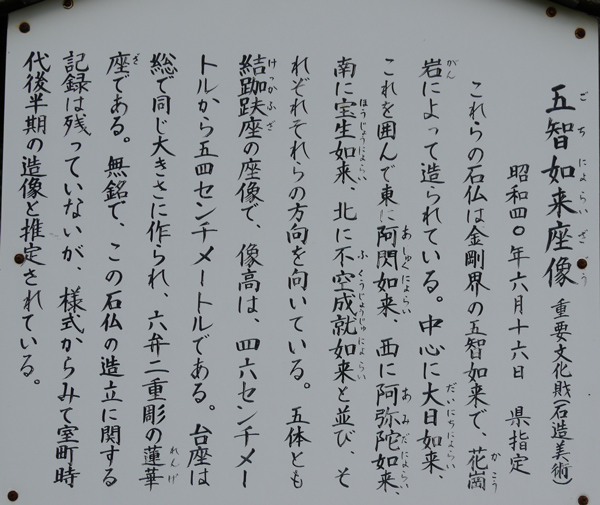 五智如来座像 重要文化財(石造美術)
昭和四〇年六月十六日 県指定
これらの石仏は金剛界の五智如来で、花崗
岩によって造られている。中心に大日如来、
これを囲んで東に阿閦如来、西に阿弥陀如来、
南に宝生如来、北に不空成就如来と並び、そ
れぞれそれらの方向を向いている。五体とも
結跏趺座の座像で、像高は、四六センチメー
トルから五四センチメートルである。台座は
総で同じ大きさに作られ、六弁二重彫の蓮華
座である。無銘で、この石仏の造立に関する
記録は残っていないが、様式からみて室町時
代後半期の造像と推定されている。